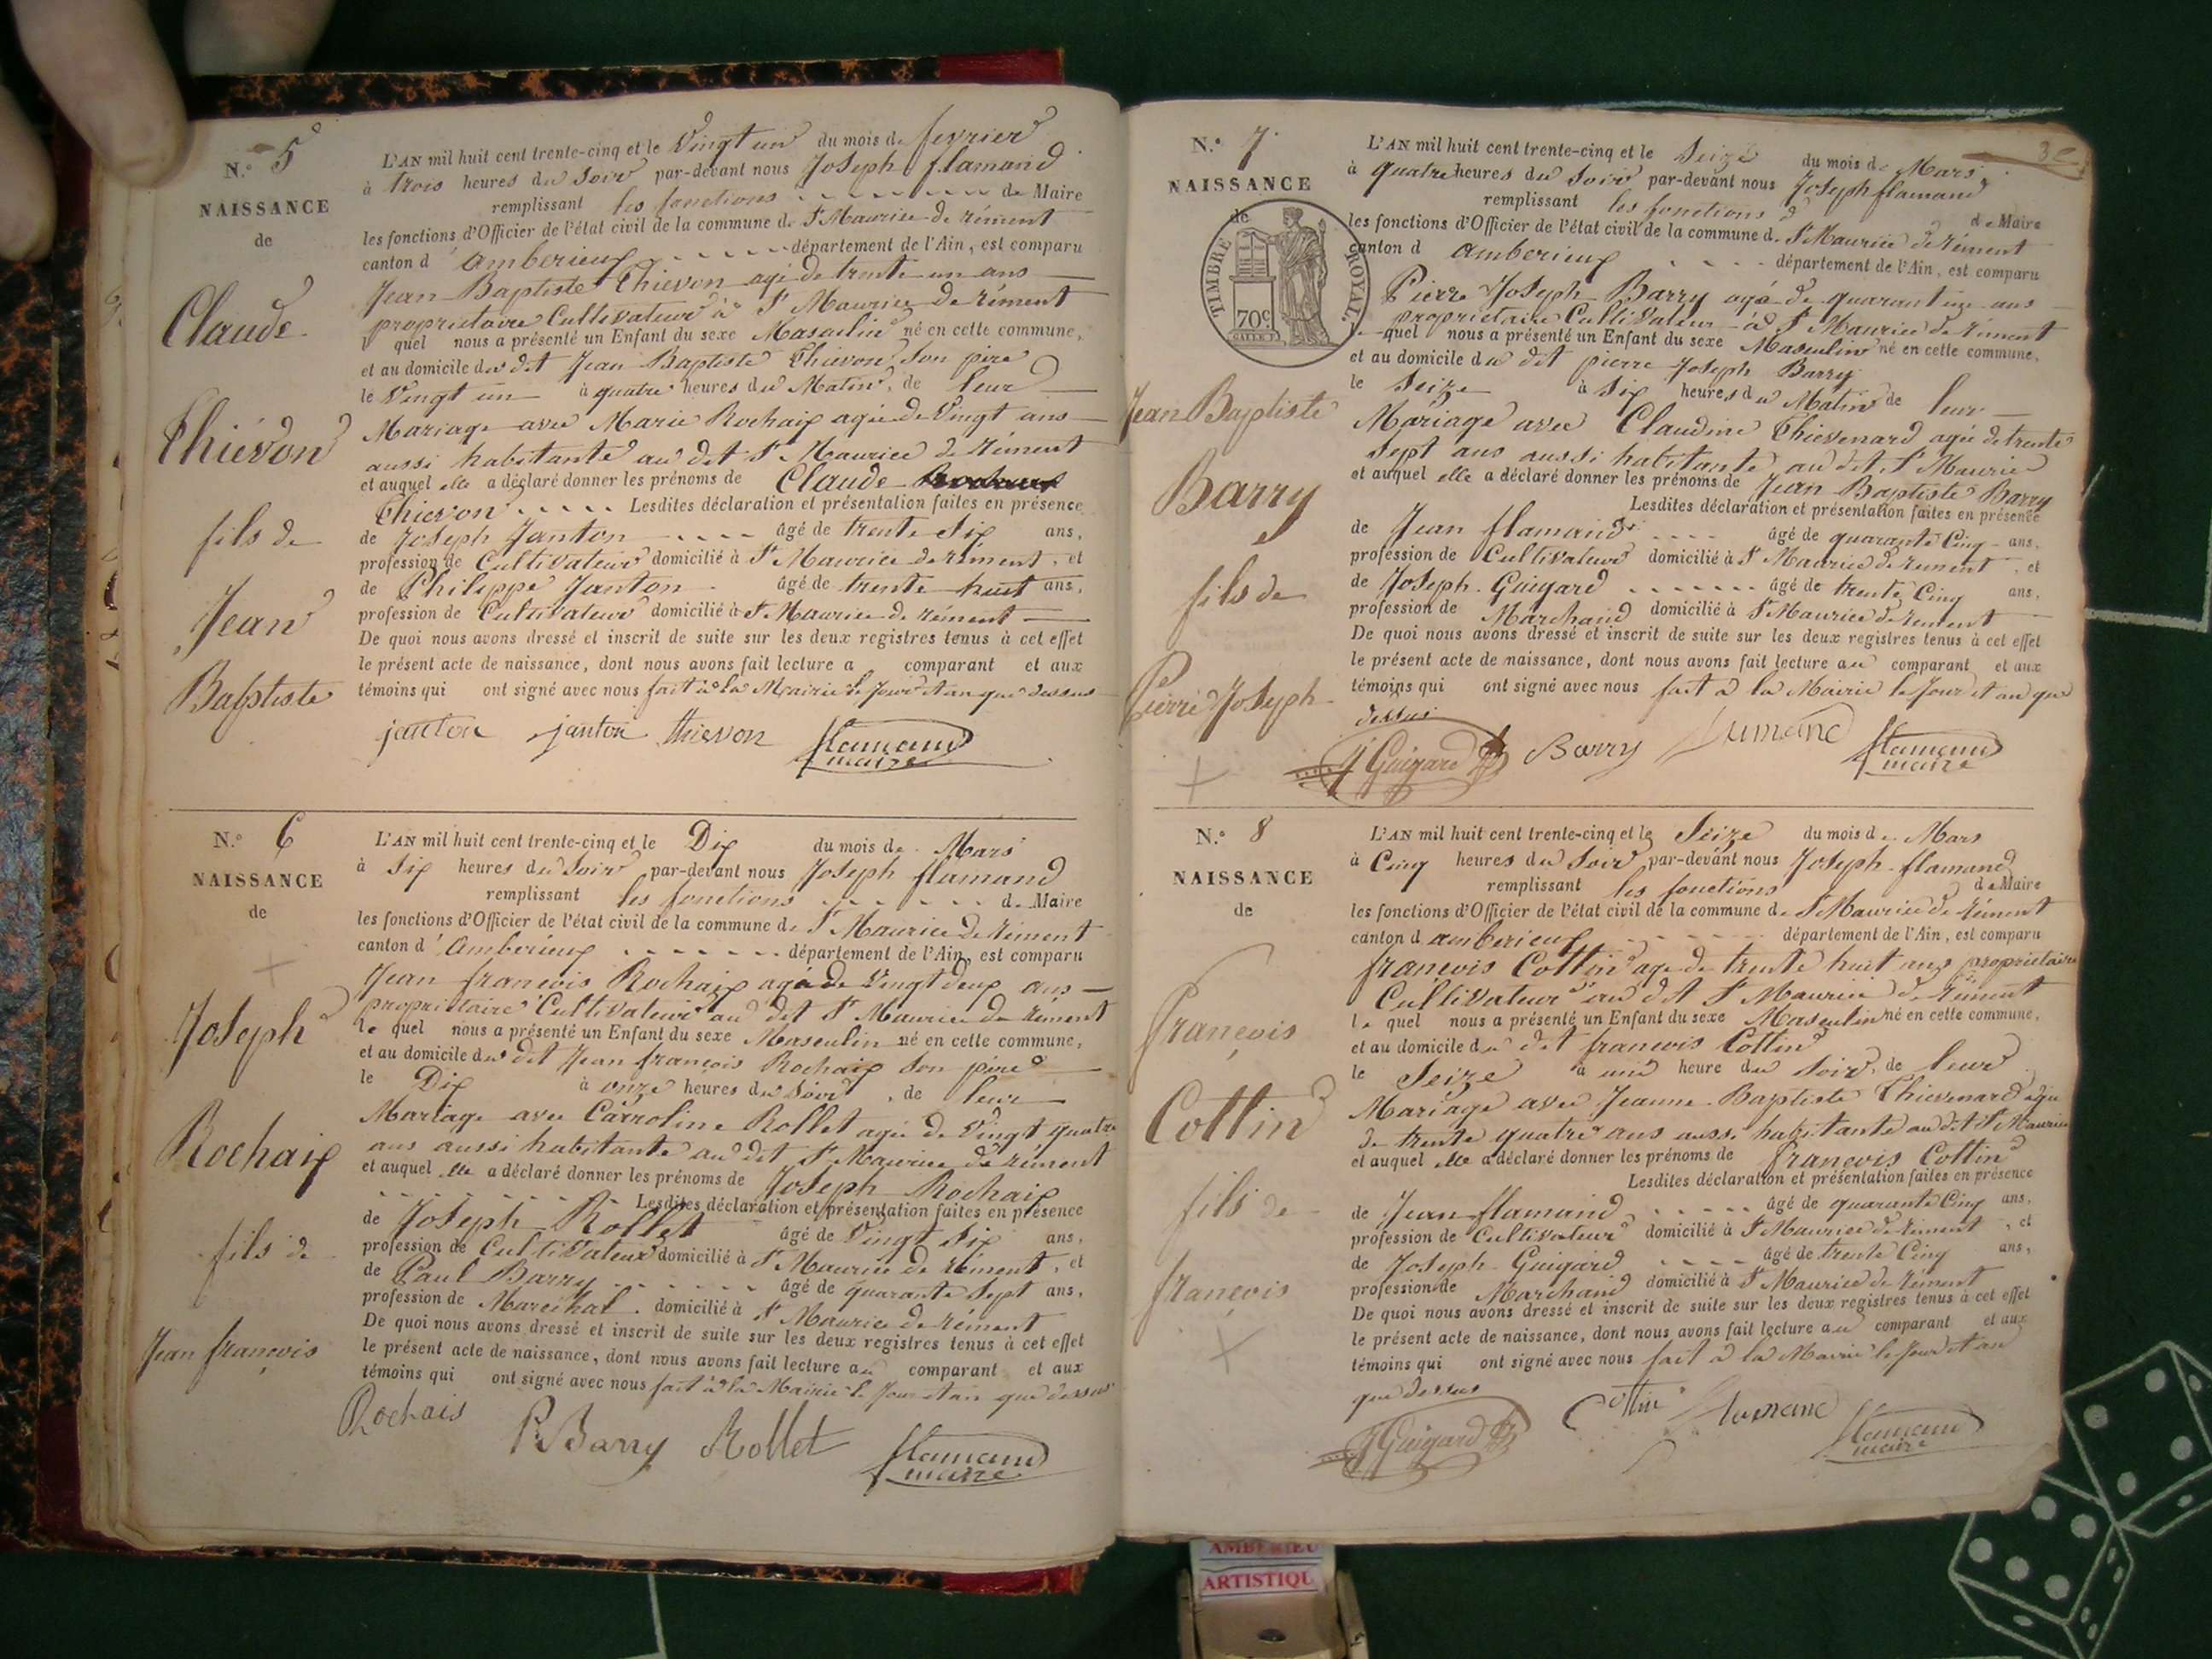 N.° 5
NAISSANCE
de
Claude
Thiévon
fils de
Jean
Baptiste
L'AN mil huit cent trente-cinq et le Vingt un du mois de fevrier
à trois heures du Soir par-devant nous Joseph flamand
remplissant les fonctions de Maire
les fonctions d'Officier de l'état civil de la commune de St Maurice de rément
canton d'amberieux département de l'Ain, est comparu
Jean Baptiste Thievon agé de trente un ans
proprietaire Cultivateur à St Maurice de rément
quel nous a présenté un Enfant du sexe Masculin né en cette commune,
et au domicile du dit Jean Baptiste Thievon Son père
le Vingt un à quatre heures du Matin, de leur
Mariage avec Marie Rochaix agée de Vingt ans
aussi habitante au dit St Maurice de rément
et auquel elle a déclaré donner les prénoms de Claude
Thievon Lesdites déclaration et présentation faites en présence
de Joseph Janton âgé de trente Six ans,
profession de Cultivateur domicilié à St Maurice de rément, et
de Philippe Janton âgé de trente huit ans,
profession de Cultivateur domicilié à St Maurice de rément
De quoi nous avons dressé et inscrit de suite sur les deux registres tenus à cet effet
le présent acte de naissance, dont nous avons fait lecture a comparant et aux
témoins qui ont signé avec nous fait à la Mairie le Jour et an que dessus
janton janton thievon flamand
maire
N.° 6
NAISSANCE
de
Joseph
Rochaix
fils de
Jean françois
L'AN mil huit cent trente-cinq et le Dix du mois de Mars
à Six heures du Soir par-devant nous Joseph flamand
remplissant les fonctions de Maire
les fonctions d'Officier de l'état civil de la commune de St Maurice de rément
canton d'amberieux département de l'Ain, est comparu
Jean francois Rochaix agé de Vingt deux ans
proprietaire Cultivateur au dit St Maurice de rément
le quel nous a présenté un Enfant du sexe Masculin né en cette commune,
et au domicile du dit Jean francois Rochaix Son père
le Dix à onze heures du Soir, de leur
Mariage avec Carroline Rollet agée de Vingt quatre
ans aussi habitante au dit St Maurice de rément
et auquel elle a déclaré donner les prénoms de Joseph Rochaix
Lesdites déclaration et présentation faites en présence
de Joseph Rollet âgé de Vingt Six ans,
profession de Cultivateur domicilié à St Maurice de rément, et
de Paul Barry âgé de quarante Sept ans,
profession de Marechal domicilié à St Maurice de rément
De quoi nous avons dressé et inscrit de suite sur les deux registres tenus à cet effet
le présent acte de naissance, dont nous avons fait lecture au comparant et aux
témoins qui ont signé avec nous fait à la Mairie le Jour et an que dessus
Rochais P Barry Rollet flamand
maire
N.° 7
NAISSANCE
de
TIMBRE ROYAL.
70c
Jean Baptiste
Barry
fils de
Pierre Joseph
L'AN mil huit cent trente-cinq et le Seize du mois de Mars
à quatre heures du Soir par-devant nous Joseph flamand
remplissant les fonctions de Maire
les fonctions d'Officier de l'état civil de la commune de St Maurice de rément
canton d amberieux département de l'Ain, est comparu
Pierre Joseph Barry agé de quarant un ans
proprietaire Cultivateur à St Maurice de rément
quel nous a présenté un Enfant du sexe Masculin né en cette commune,
et au domicile du dit pierre Joseph Barry
le Seize à Six heures du Matin de leur
Mariage avec Claudine Thievenard agée de trente
Sept ans aussi habitante au dit St Maurice
et auquel elle a déclaré donner les prénoms de Jean Baptiste Barry
Lesdites déclaration et présentation faites en présence
de Jean flamand âgé de quarante Cinq ans,
profession de Cultivateur domicilié à St Maurice de rément, et
de Joseph Guigard âgé de trente Cinq ans,
profession de Marchand domicilié à St Maurice de rément
De quoi nous avons dressé et inscrit de suite sur les deux registres tenus à cet effet
le présent acte de naissance, dont nous avons fait lecture au comparant et aux
témoins qui ont signé avec nous fait à la Mairie le Jour et an que
dessus
J Guigard Barry flamand flamand
maire
N.° 8
NAISSANCE
de
françois
Cottin
fils de
françois
L'AN mil huit cent trente-cinq et le Seize du mois de Mars
à Cinq heures du Soir par-devant nous Joseph flamand
remplissant les fonctions de Maire
les fonctions d'Officier de l'état civil de la commune de St Maurice de rément
canton d amberieux département de l'Ain, est comparu
francois Cottin age de trente huit ans proprietaire
Cultivateur au dit St Maurice de rément
le quel nous a présenté un Enfant du sexe Masculin né en cette commune,
et au domicile du dit francois Cottin
le Seize à une heure du Soir, de leur
Mariage avec Jeanne Baptiste Thievenard agée
de trente quatre ans aussi habitante au dit St Maurice
et auquel elle a déclaré donner les prénoms de françois Cottin
Lesdites déclaration et présentation faites en présence
de Jean flamand âgé de quarante Cinq ans,
profession de Cultivateur domicilié à St Maurice de rément, et
de Joseph Guigard âgé de trente Cinq ans,
profession de Marchand domicilié à St Maurice de rément
De quoi nous avons dressé et inscrit de suite sur les deux registres tenus à cet effet
le présent acte de naissance, dont nous avons fait lecture au comparant et aux
témoins qui ont signé avec nous fait à la Mairie le Jour et an
que dessus
J Guigard Cottin flamand flamand
maire
AMBERIEU
ARTISTIQU